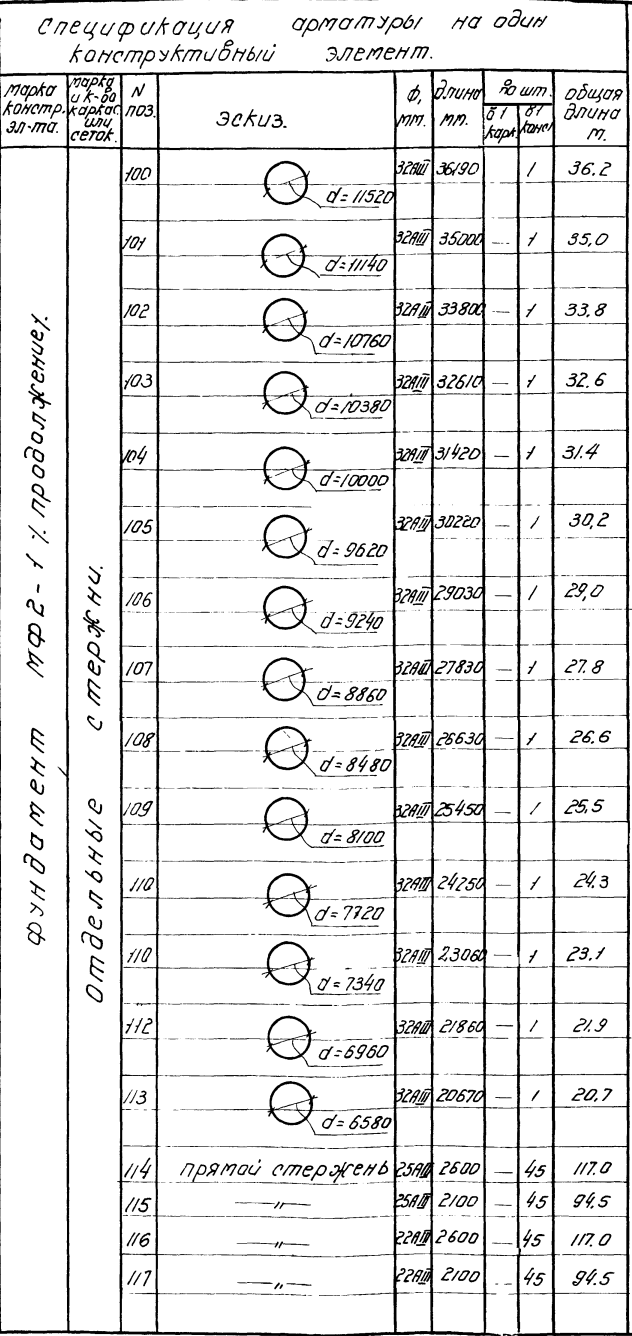 Спецификация арматуры на один
конструктивный элемент.
марка констр. эл-та.
марка и к-во каркас. или сеток.
N поз.
эскиз.
ф, мм.
длина мм.
по шт.
в 1 карк.
в 1 конст
общая длина м.
фундамент МФ2-1 /продолжение/.
отдельные стержни.
100 d=11520 32АIII 36190 1 36.2
101 d=11140 32АIII 35000 — 1 35,0
102 d=10760 32АIII 33800 — 1 33,8
103 d=10380 32АIII 32610 — 1 32.6
104 d=10000 32АIII 31420 — 1 31.4
105 d=9620 32АIII 30220 — 1 30,2
106 d=9240 32АIII 29030 — 1 29,0
107 d=8860 32АIII 27830 — 1 27.8
108 d=8480 32АIII 26630 — 1 26,6
109 d=8100 32АIII 25450 — 1 25,5
110 d=7720 32АIII 24250 — 1 24.3
110 d=7340 32АIII 23060 — 1 23.1
112 d=6960 32АIII 21860 — 1 21.9
113 d=6580 32АIII 20670 — 1 20,7
114 прямой стержень 25АIII 2600 — 45 117.0
115 —〃— 25АIII 2100 — 45 94,5
116 —〃— 22АIII 2600 — 45 117.0
117 —〃— 22АIII 2100 — 45 94.5